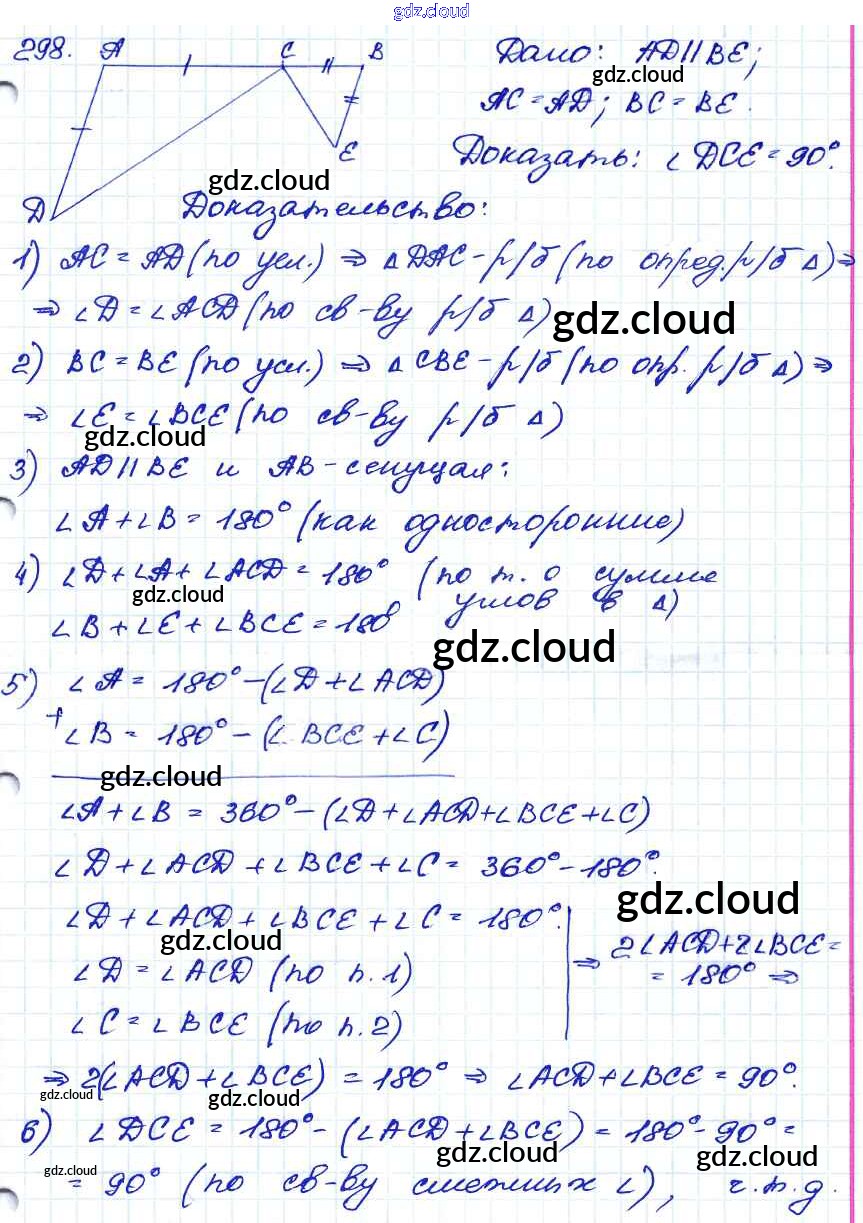 gdz.cloud
298. A C B Дано: AD||BE;
gdz.cloud
AC = AD; BC = BE.
E Доказать: ∠DCE = 90°.
gdz.cloud
D Доказательство:
1) AC = AD (по усл.) ⇒ △DAC - р/б (по опред. р/б △) ⇒
⇒ ∠D = ∠ACD (по св-ву р/б △)
gdz.cloud
2) BC = BE (по усл.) ⇒ △CBE - р/б (по опр. р/б △) ⇒
⇒ ∠E = ∠BCE (по св-ву р/б △)
gdz.cloud
3) AD||BE и AB - секущая:
∠A + ∠B = 180° (как односторонние)
4) ∠D + ∠A + ∠ACD = 180° (по т. о сумме
gdz.cloud
углов в △)
∠B + ∠E + ∠BCE = 180°
gdz.cloud
5) ∠A = 180° - (∠D + ∠ACD)
+
∠B = 180° - (∠BCE + ∠C)
gdz.cloud
∠A + ∠B = 360° - (∠D + ∠ACD + ∠BCE + ∠C)
∠D + ∠ACD + ∠BCE + ∠C = 360° - 180°.
gdz.cloud
∠D + ∠ACD + ∠BCE + ∠C = 180°.
gdz.cloud
⇒ 2∠ACD + 2∠BCE =
= 180° ⇒
∠D = ∠ACD (по п. 1)
∠C = ∠BCE (по п. 2)
⇒ 2(∠ACD + ∠BCE) = 180° ⇒ ∠ACD + ∠BCE = 90°.
gdz.cloud
gdz.cloud
6) ∠DCE = 180° - (∠ACD + ∠BCE) = 180° - 90° =
gdz.cloud
gdz.cloud
gdz.cloud
= 90° (по св-ву смежных ∠), ч.т.д.